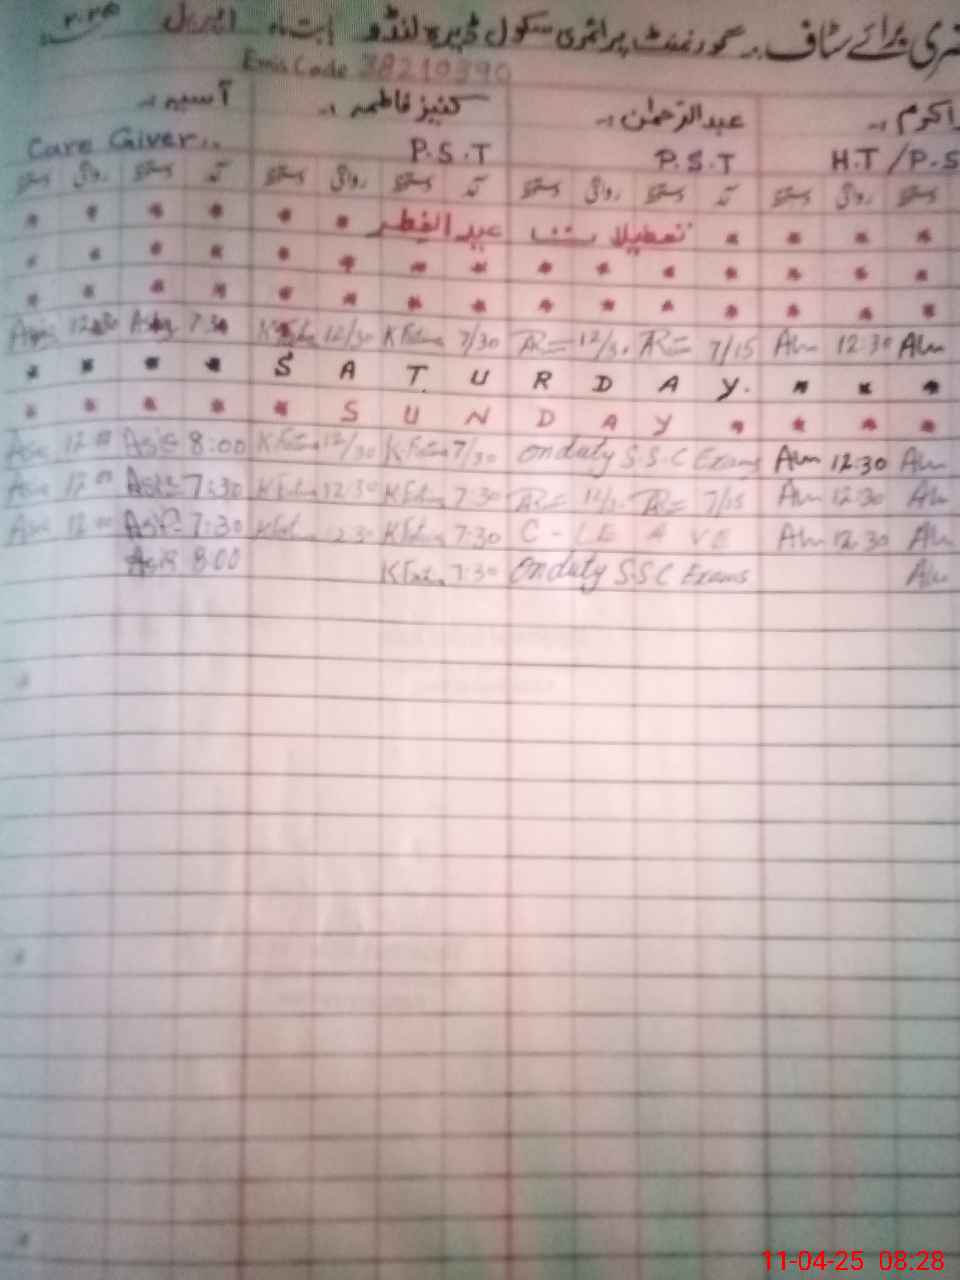 حاضری برائے سٹاف ۔۔ گورنمنٹ پرائمری سکول ڈہیرہ لنڈو بابت ماہ اپریل ۲۰۲۵
Emis Code 38210390
اکرم ۔۔ عبدالرحمٰن ۔۔ کنیز فاطمہ ۔۔ آسیہ ۔۔
H.T / P.S P.S.T P.S.T Care Giver..
دستخط روانگی دستخط آمد دستخط روانگی دستخط آمد دستخط روانگی دستخط آمد دستخط روانگی دستخط
تعطیلات عید الفطر
12:30 7:30 K Fatima 12/30 K Fatima 7/30 AR 12/30 AR 7/15 Alm 12:30 Alm
S A T U R D A Y.
S U N D A Y
12:00 Asia 8:00 K Fatima 12/30 K Fatima 7/30 On duty S.S.C Exams Alm 12:30 Alm
12:00 Asia 7:30 K Fatima 12:30 K Fatima 7:30 AR 12/30 AR 7/15 Alm 12:30 Alm
12:00 Asia 7:30 K Fatima 12:30 K Fatima 7:30 C - LEAVE Alm 12:30 Alm
Asia 8:00 K Fatima 7:30 On duty S.S.C Exams Alm
11-04-25 08:28